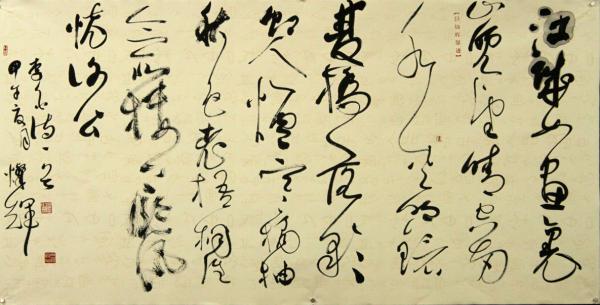 江城如画里
山晚望晴空两
水夹明镜
双桥落彩
虹人烟寒橘柚
秋色老梧桐谁
念北楼上临风
怀谢公
李白诗一首
甲午夏月 灿辉